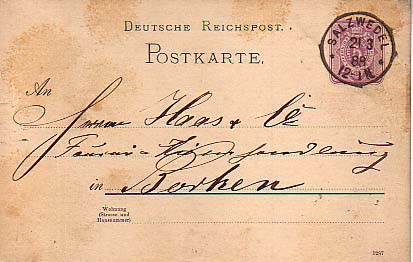 DEUTSCHE REICHSPOST.
POSTKARTE.
SALZWEDEL
21 3
12-1N
An
Herren Haas & Cie
in Borken
Wohnung
(Strasse und
Hausnummer)
1287